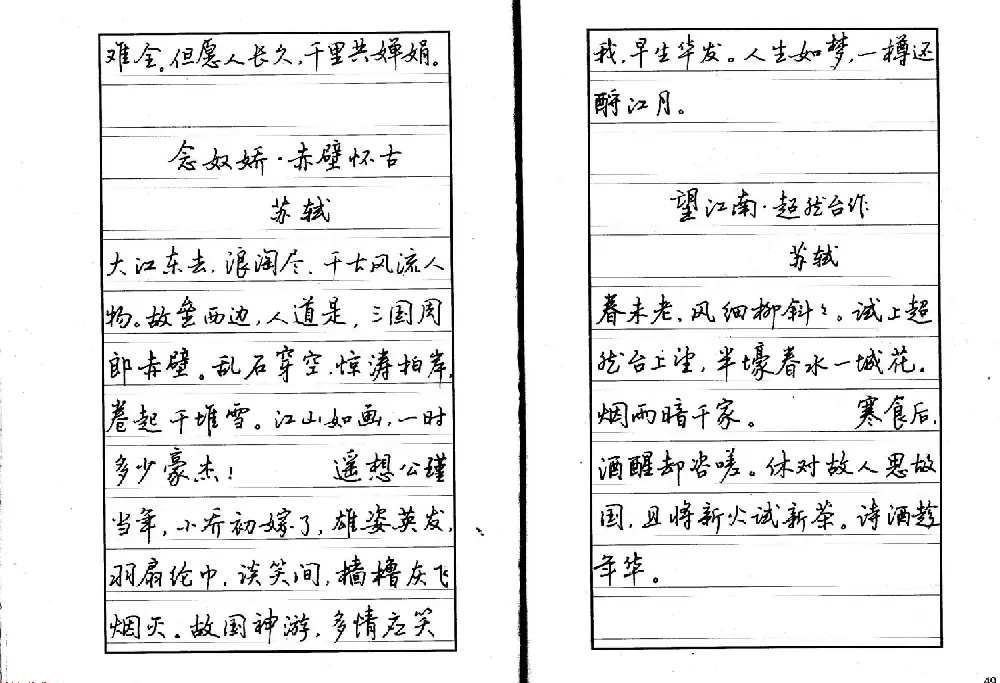 难全。但愿人长久，千里共婵娟。
念奴娇·赤壁怀古
苏轼
大江东去，浪淘尽、千古风流人
物。故垒西边，人道是，三国周
郎赤壁。乱石穿空，惊涛拍岸，
卷起千堆雪。江山如画，一时
多少豪杰！ 遥想公瑾
当年，小乔初嫁了，雄姿英发，
羽扇纶巾，谈笑间，樯橹灰飞
烟灭。故国神游，多情应笑
我，早生华发。人生如梦，一樽还
酹江月。
望江南·超然台作
苏轼
春未老，风细柳斜々。试上超
然台上望，半壕春水一城花。
烟雨暗千家。 寒食后，
酒醒却咨嗟。休对故人思故
国，且将新火试新茶。诗酒趁
年华。
49